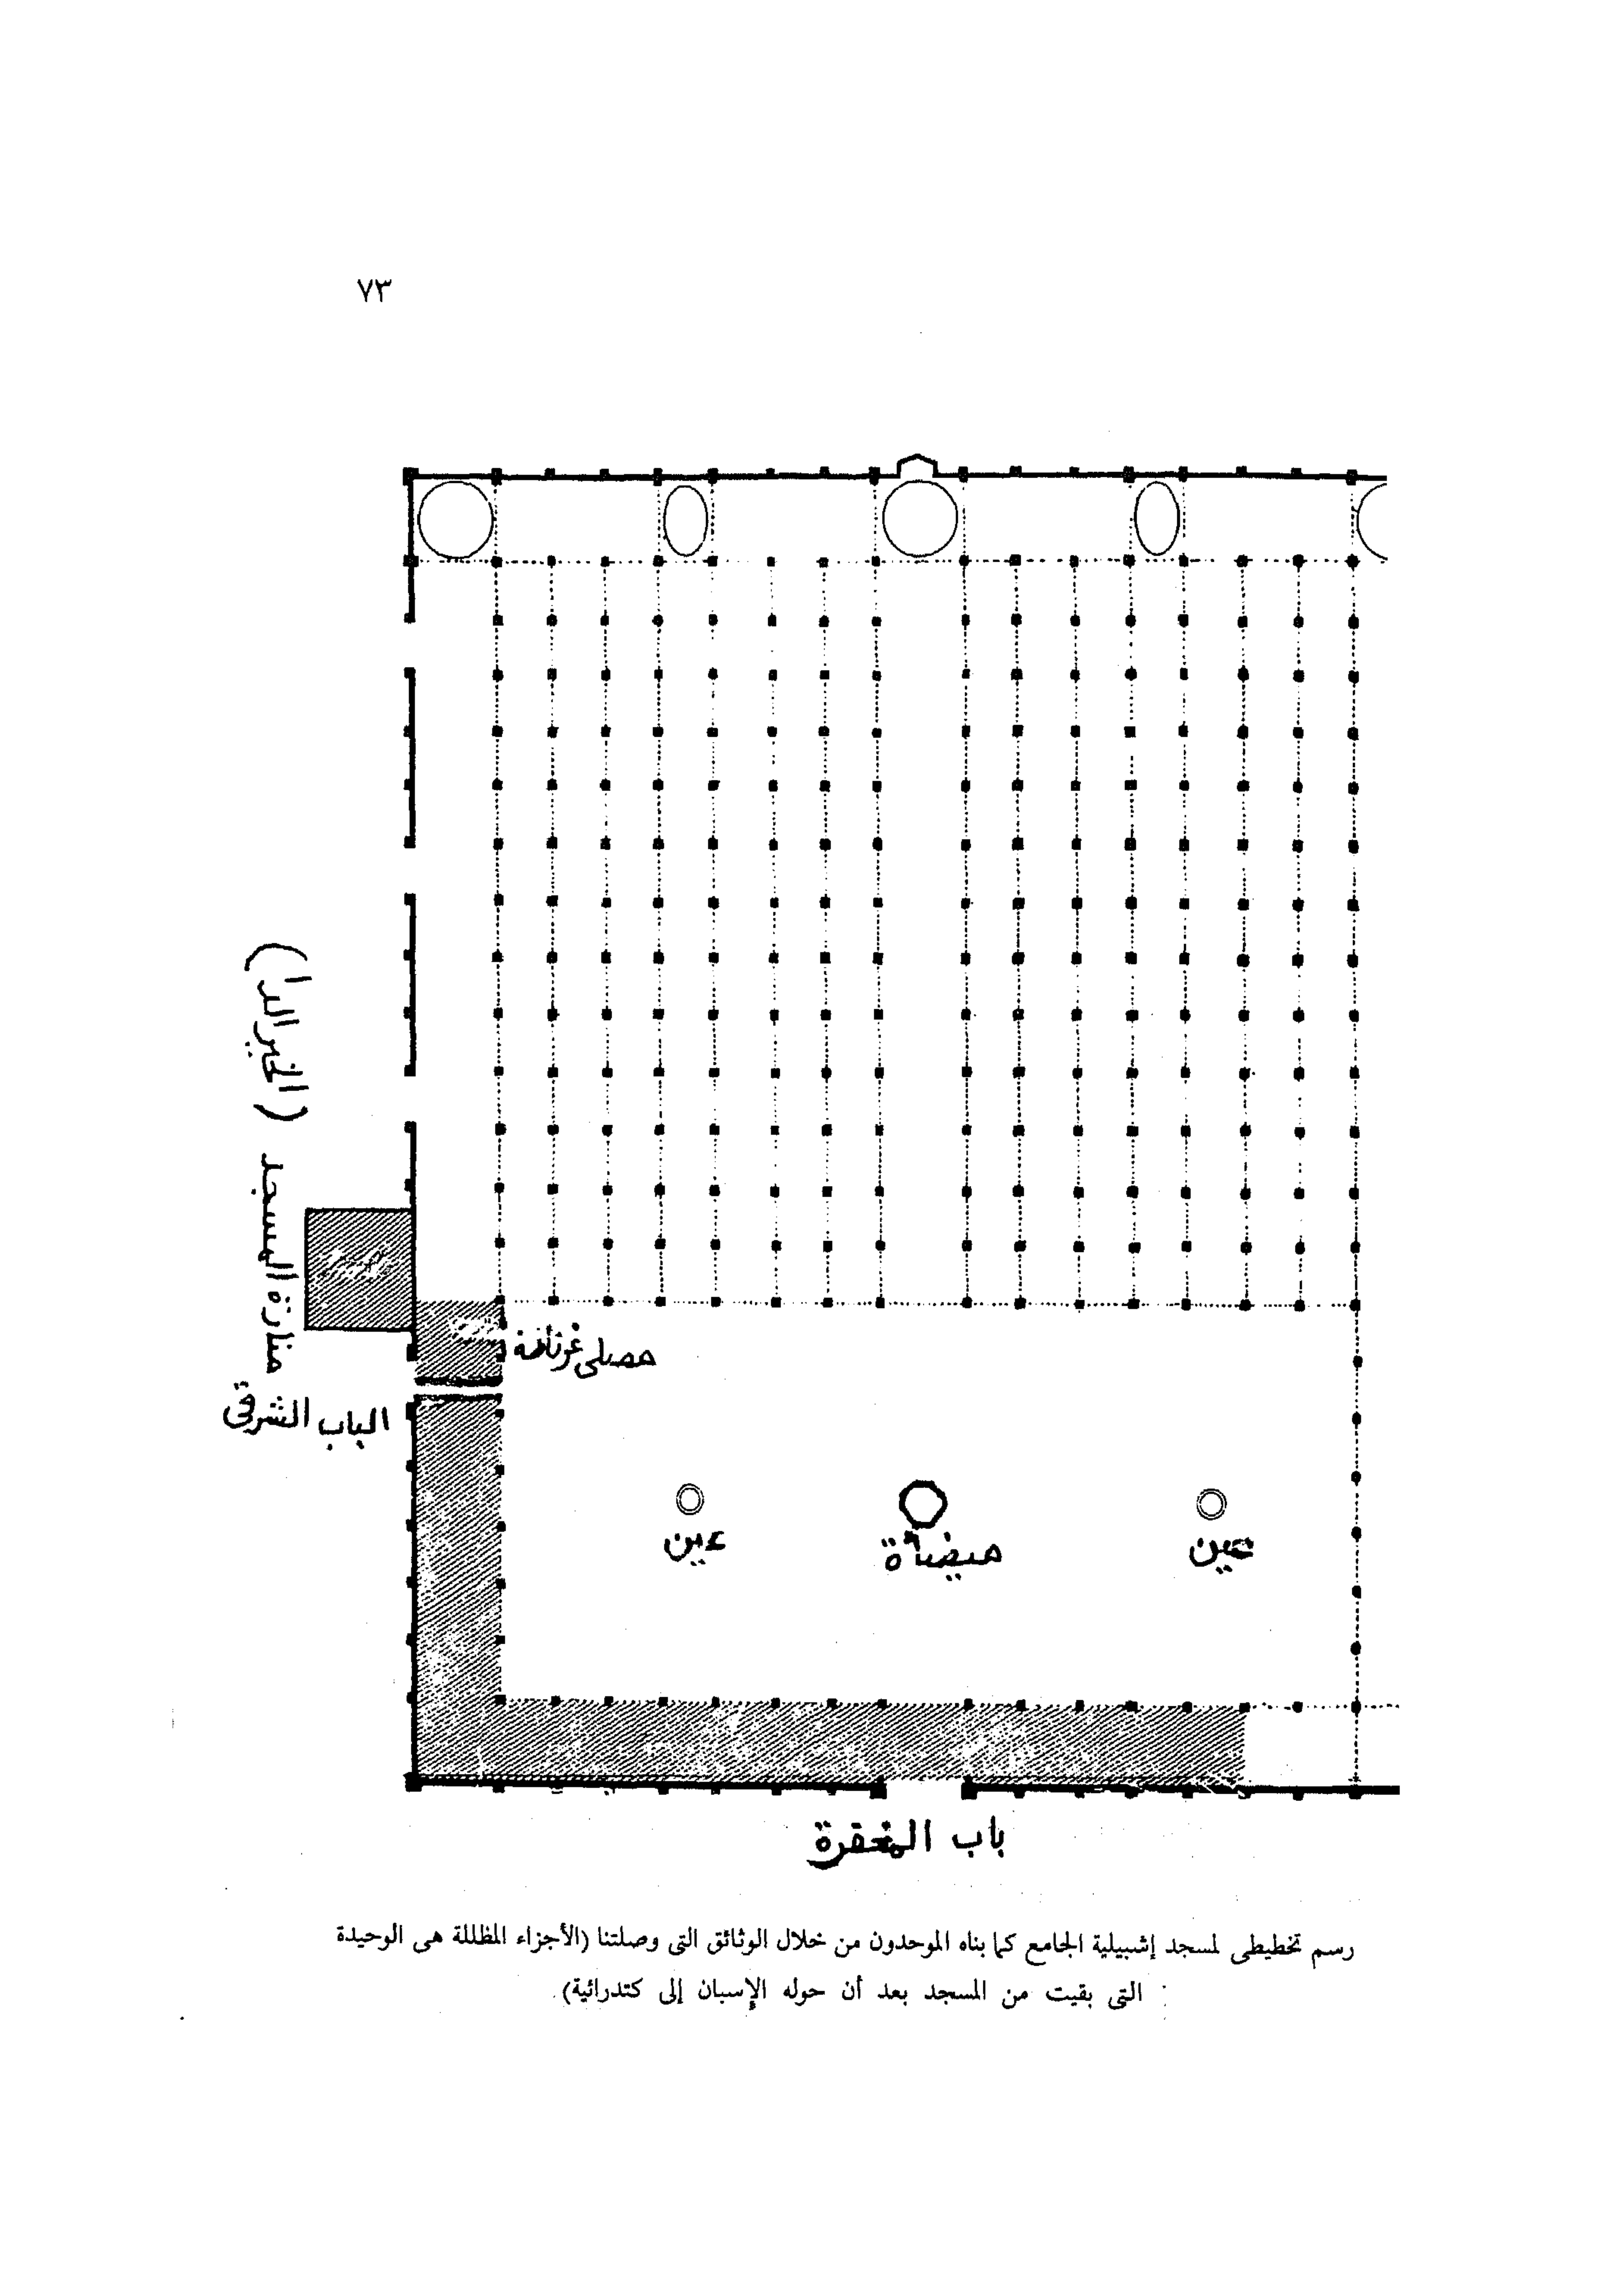 ٧٣
منارة المسجد (الخيرالدا)
مصلى غرناطة
الباب الشرقي
عين
ميضأة
عين
باب المغفرة
رسم تخطيطى لمسجد إشبيلية الجامع كما بناه الموحدون من خلال الوثائق التى وصلتنا (الأجزاء المظللة هى الوحيدة
التى بقيت من المسجد بعد أن حوله الإسبان إلى كتدرائية).